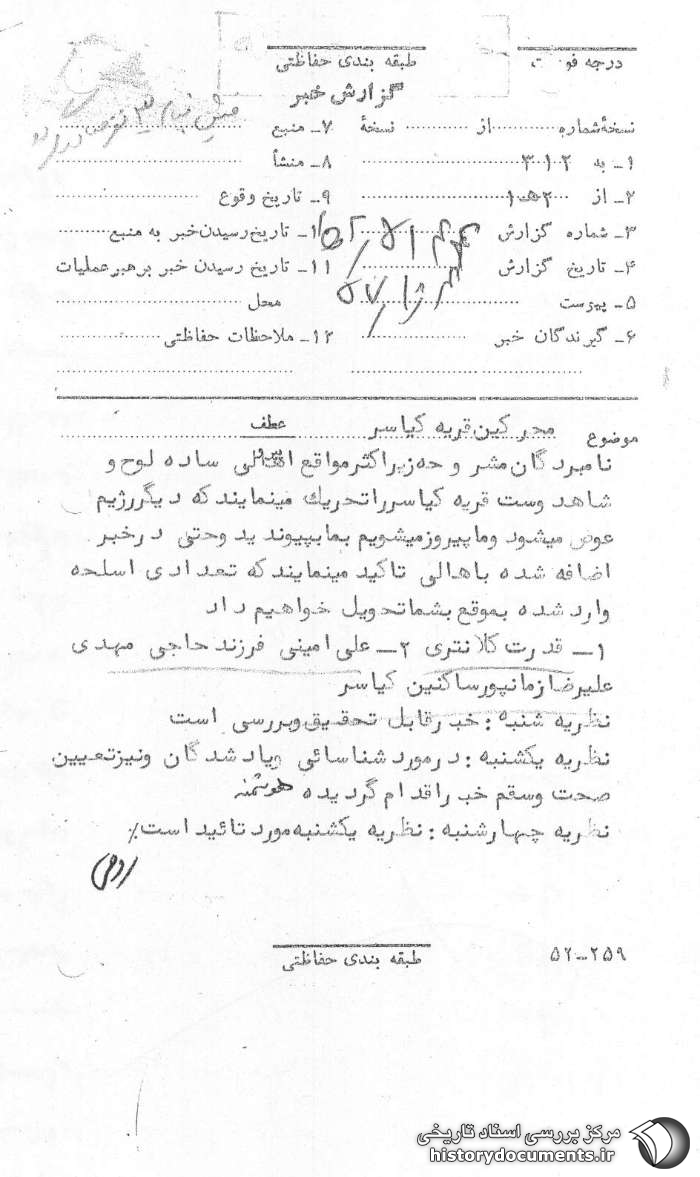 درجه فوریت
طبقه بندی حفاظتی
گزارش خبر
نسخه شماره ............ از ............ نسخه
۷ـ منبع
۱ـ به ۳۱۲
۸ـ منشأ
۲ـ از ۱۰ه۲
۹ـ تاریخ وقوع
۳ـ شماره گزارش
۱۰ـ تاریخ رسیدن خبر به منبع
۴ـ تاریخ گزارش
۱۱ـ تاریخ رسیدن خبر برهبر عملیات
۵ـ پیوست
محل
۶ـ گیرندگان خبر
۱۲ـ ملاحظات حفاظتی
موضوع محرکین قریه کیاسر عطف
نامبردگان مشروحه زیر اکثر مواقع ساده لوح و
شاهدوست قریه کیاسر را تحریك مینمایند که دیگر رژیم
عوض میشود و ما پیروز میشویم بما بپیوندید و حتی در خبر
اضافه شده باهالی تاکید مینمایند که تعدادی اسلحه
وارد شده بموقع بشما تحویل خواهیم داد
۱ـ قدرت کلانتری ۲ـ علی امینی فرزند حاجی مهدی
علیرضا زمانپور ساکنین کیاسر
نظریه شنبه : خبر قابل تحقیق و بررسی است
نظریه یکشنبه : در مورد شناسائی ویاد شدگان و نیز تعیین
صحت و سقم خبر اقدام گردیده هوشمند
نظریه چهارشنبه : نظریه یکشنبه مورد تائید است٪
۵۲ـ۲۵۹
طبقه بندی حفاظتی
مرکز بررسی اسناد تاریخی
historydocuments.ir